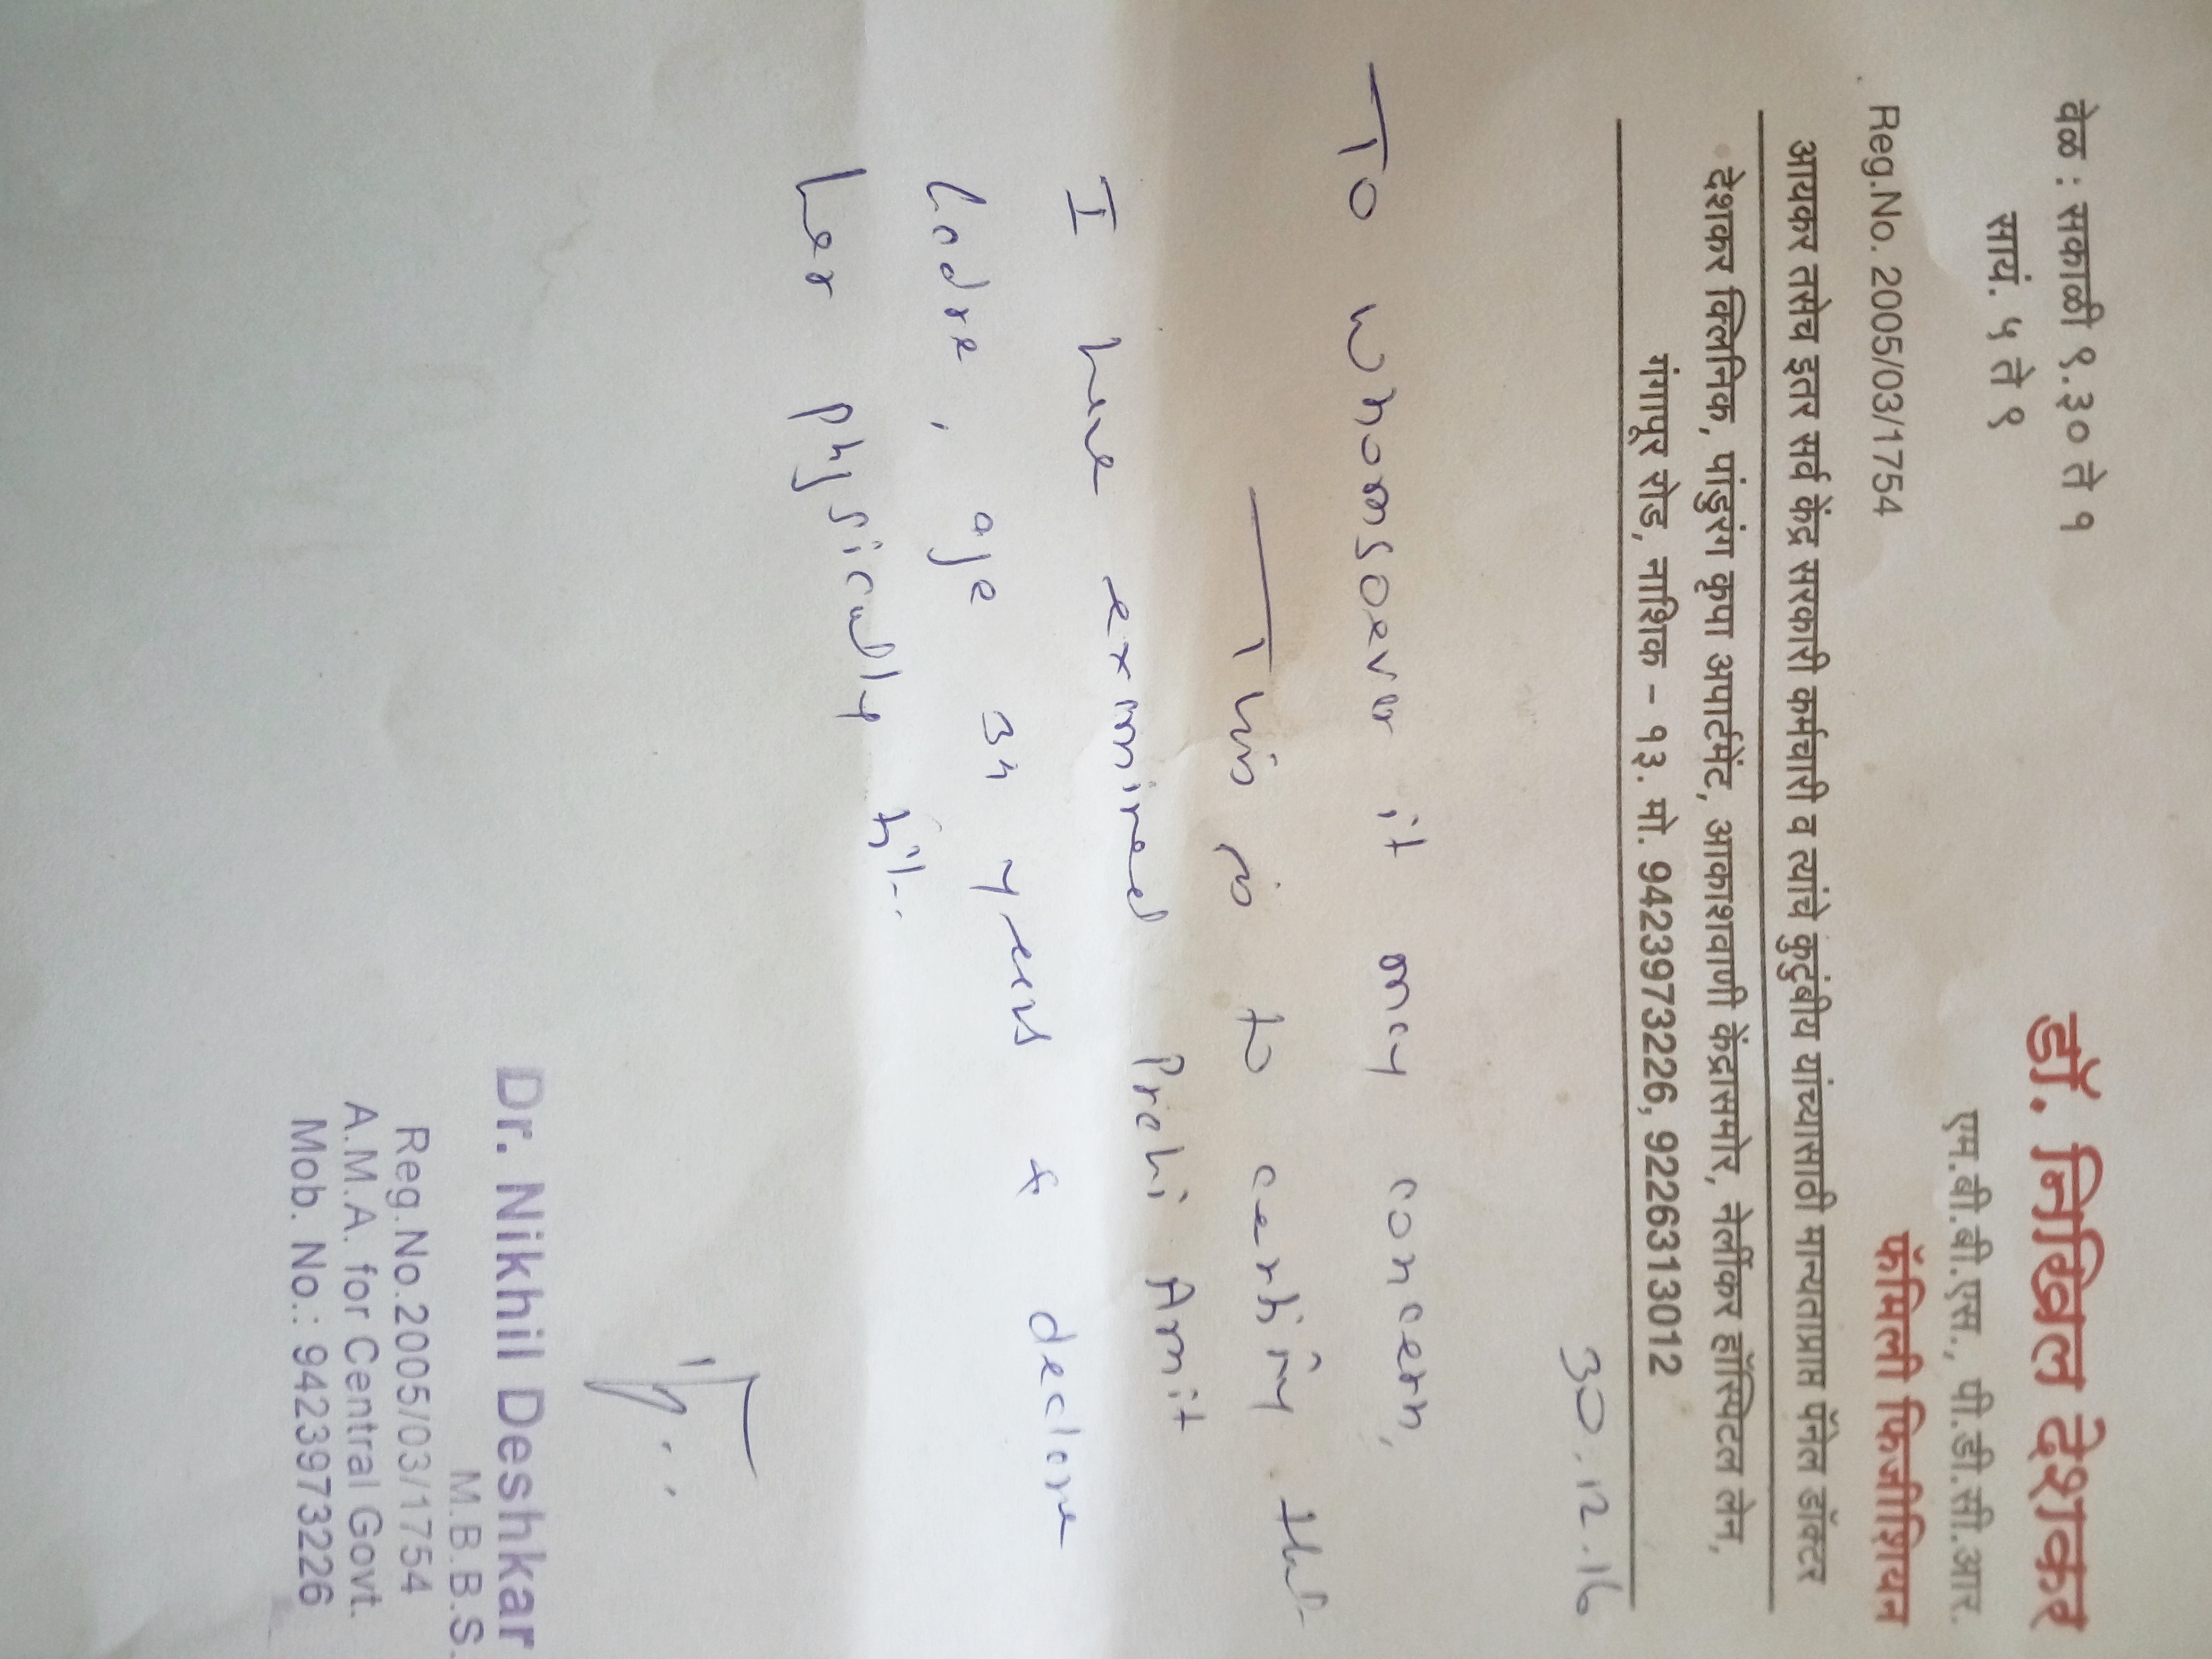 डॉ. निखिल देशकर
वेळ : सकाळी ९.३० ते १
एम.बी.बी.एस., पी.डी.सी.आर.
सायं. ५ ते ९
फॅमिली फिजीशियन
Reg.No. 2005/03/1754
आयकर तसेच इतर सर्व केंद्र सरकारी कर्मचारी व त्यांचे कुटुंबीय यांच्यासाठी मान्यताप्राप्त पॅनेल डॉक्टर
देशकर क्लिनिक, पांडुरंग कृपा अपार्टमेंट, आकाशवाणी केंद्रासमोर, नेर्लीकर हॉस्पिटल लेन,
गंगापूर रोड, नाशिक - १३. मो. 9423973226, 9226313012
30.12.16
To whomsoever it may concern,
This is to certify that
I have examined Prachi Amit
age 34 years & declare
her physically fit.
Dr. Nikhil Deshkar
M.B.B.S.
Reg.No.2005/03/1754
A.M.A. for Central Govt.
Mob. No.: 9423973226